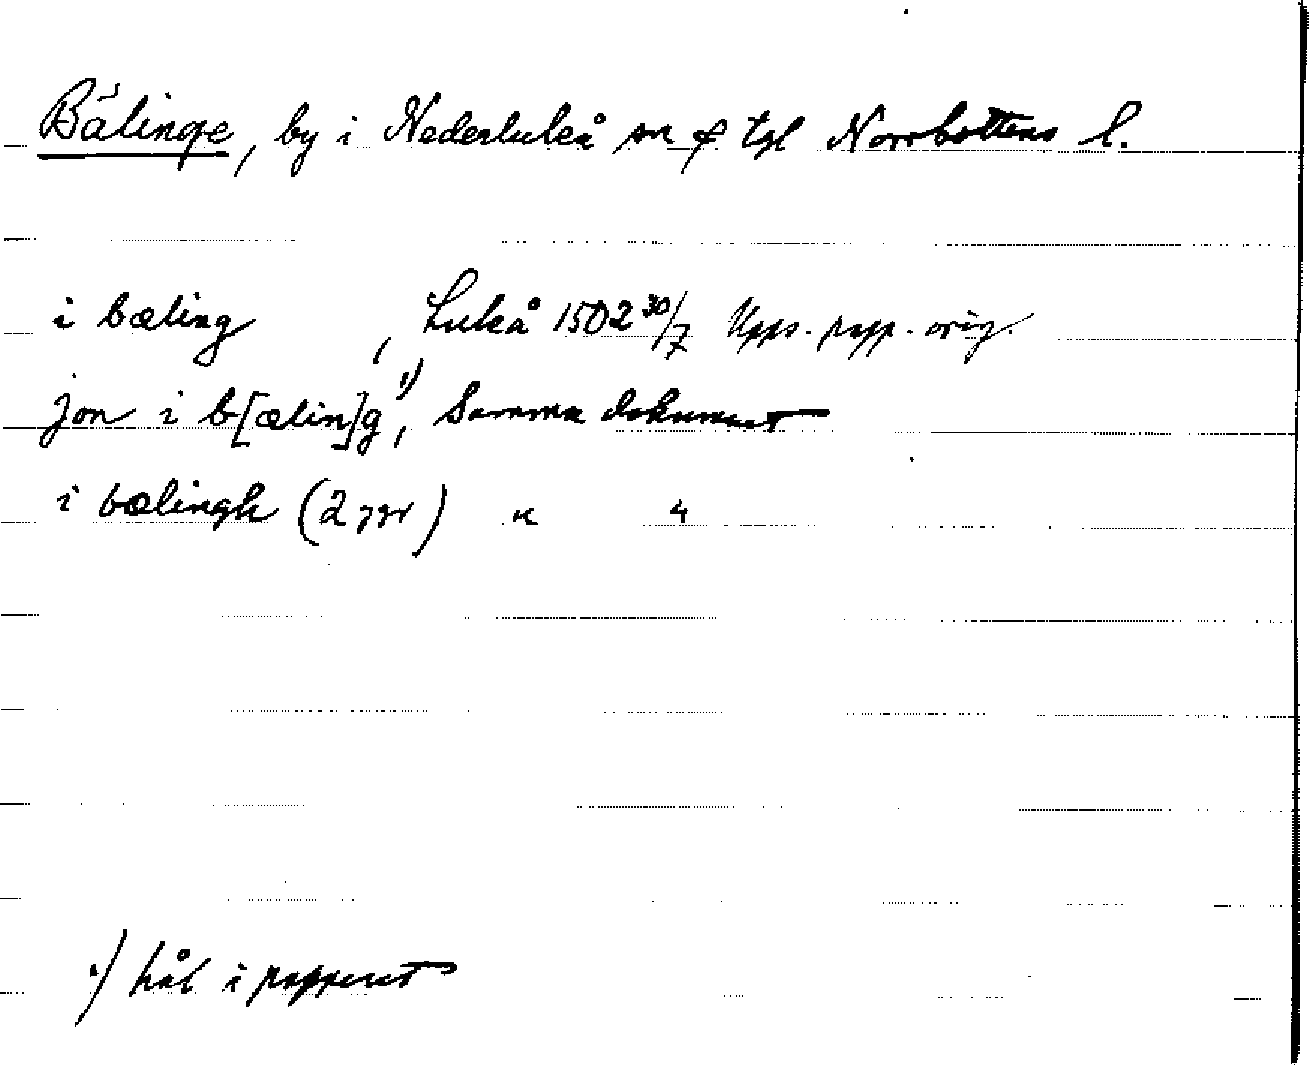 Bälinge, by i Nederluleå sn o tgl Norrbottens l.
i bæling , Luleå 1502 30/7 Upps. papp. orig.
jon i b[ælin]g 1), Samma dokument
i bælingh (2 ggr) " "
1) hål i papperet